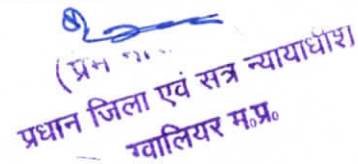 (प्रेम
प्रधान जिला एवं सत्र न्यायाधीश
ग्वालियर म.प्र.